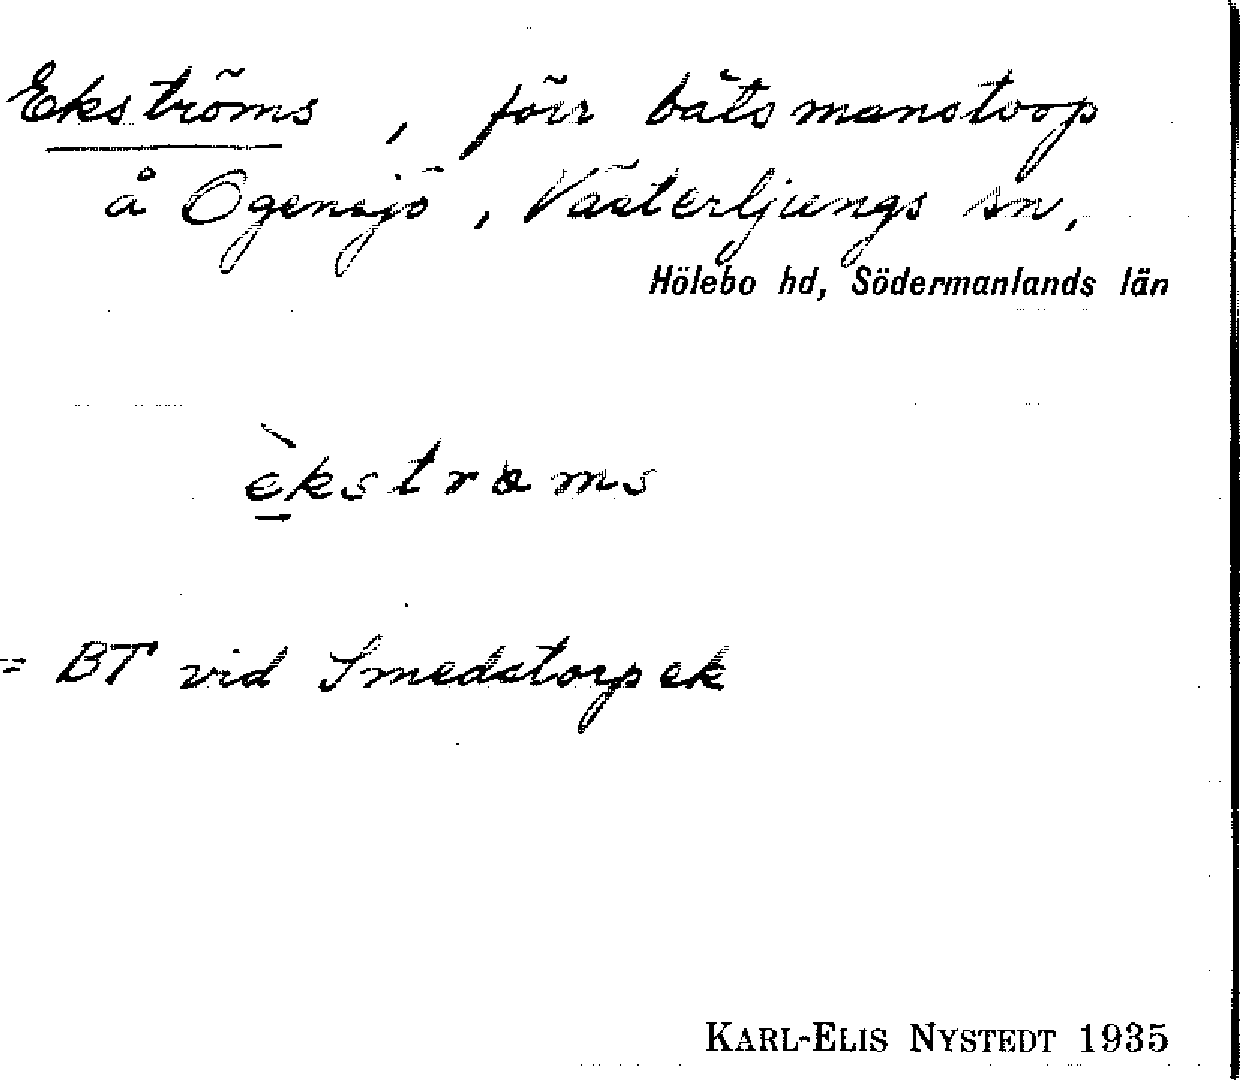 Ekströms, förr båtsmanstorp
å Ogensjö, Västerljungs sn,
Hölebo hd, Södermanlands län
èkstrams
= BT vid Smedstorp ek
KARL-ELIS NYSTEDT 1935